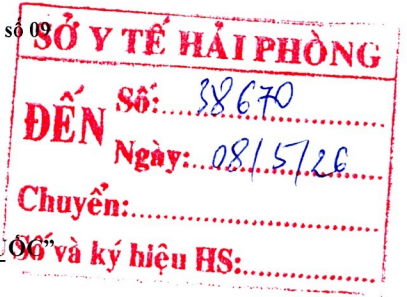 số 09
SỞ Y TẾ HẢI PHÒNG
ĐẾN Số: 38670
Ngày: 08/5/26
Chuyển:
Số và ký hiệu HS: